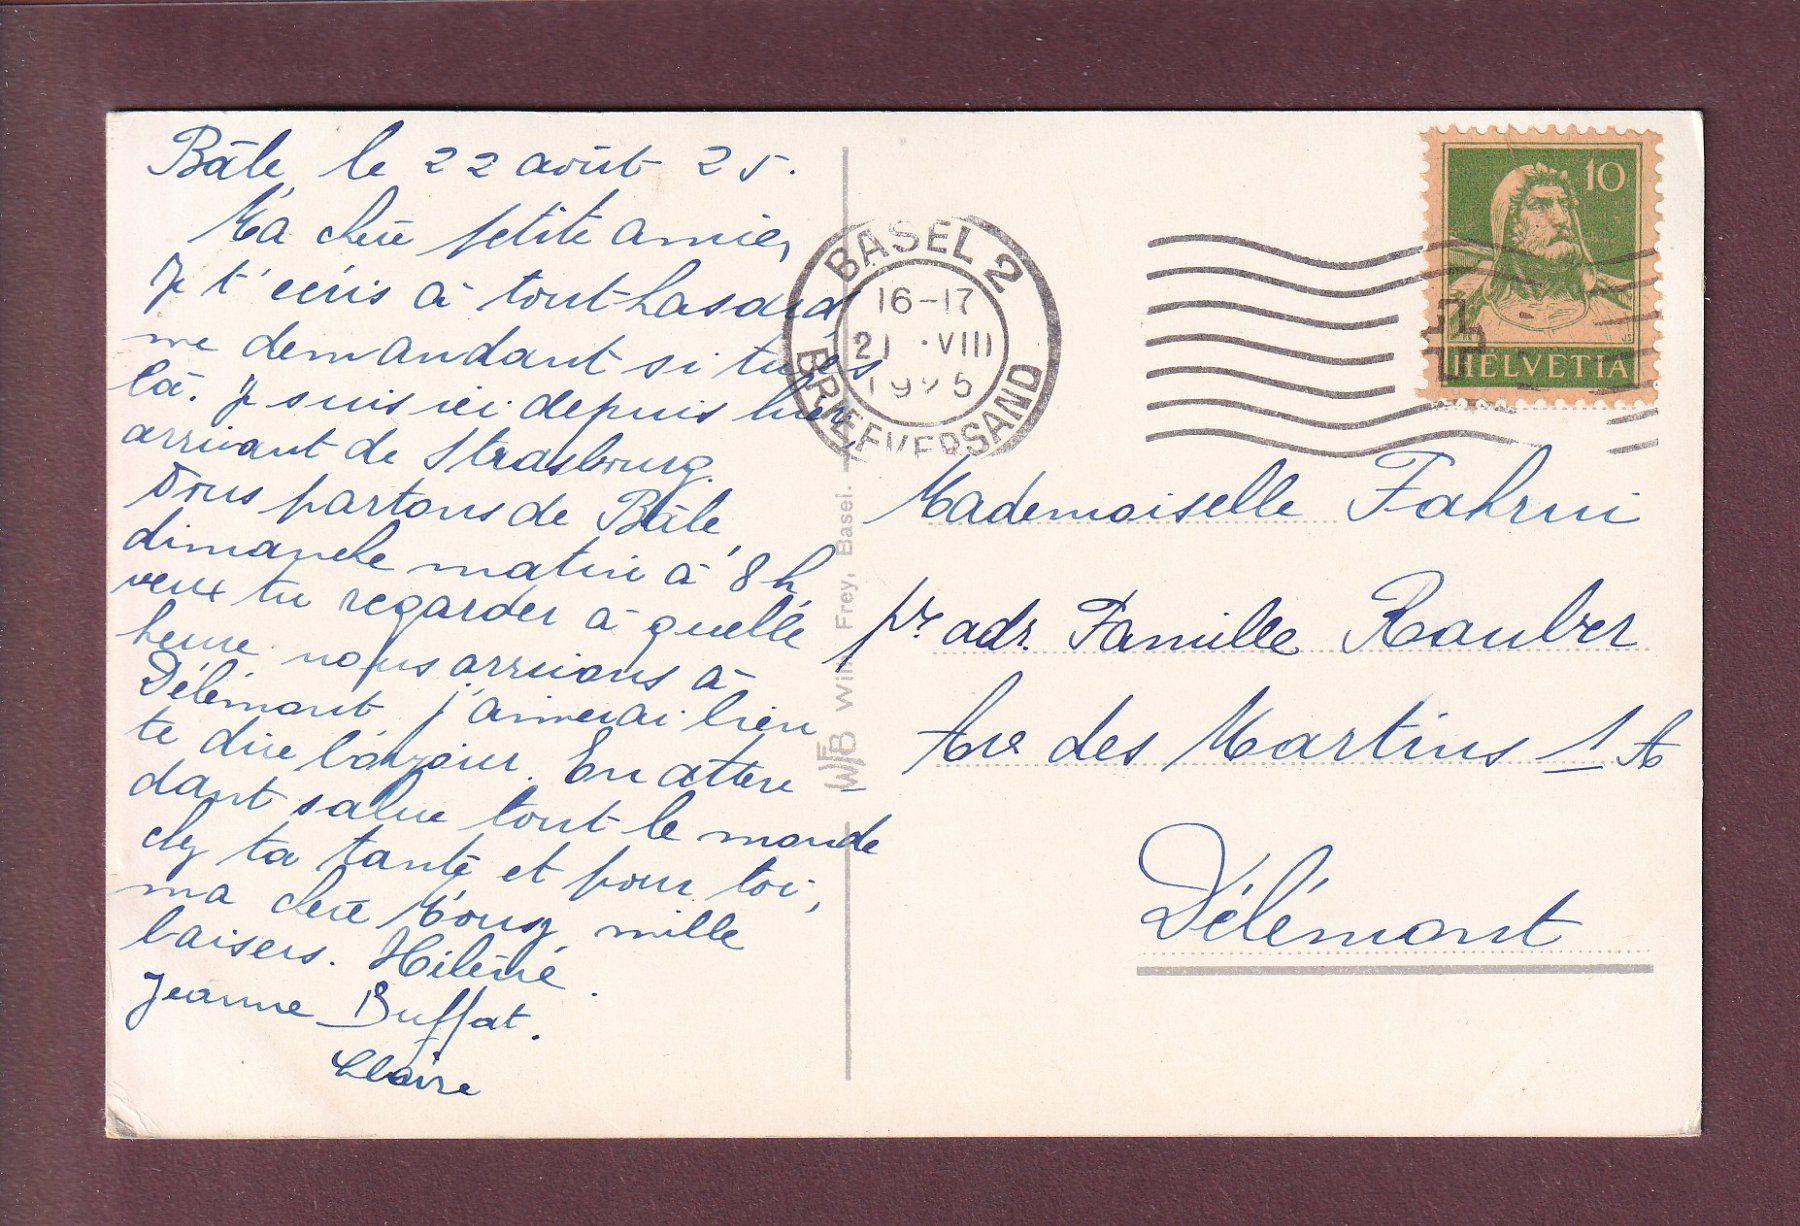 Bâle, le 22 août 25.
Ma chère petite amie,
Je t'écris à tout hasard
me demandant si tu es
là. Je suis ici depuis hier,
arrivant de Strasbourg.
Nous partons de Bâle,
dimanche matin à 8h,
veux tu regarder à quelle
heure nous arrivons à
Délémont j'aimerai bien
te dire bonjour. En atten-
dant salue tout le monde
chez ta tante et pour toi,
ma chère mille
baisers. Hélène.
Jeanne Buffat.
Claire
WFB Wilh. Frey, Basel.
BASEL 2
16-17
21.VIII
1925
BRIEFVERSAND
10
HELVETIA
Mademoiselle Fahrni
pr. adr. Famille Rauber
Ave des Martins 1A
Délémont